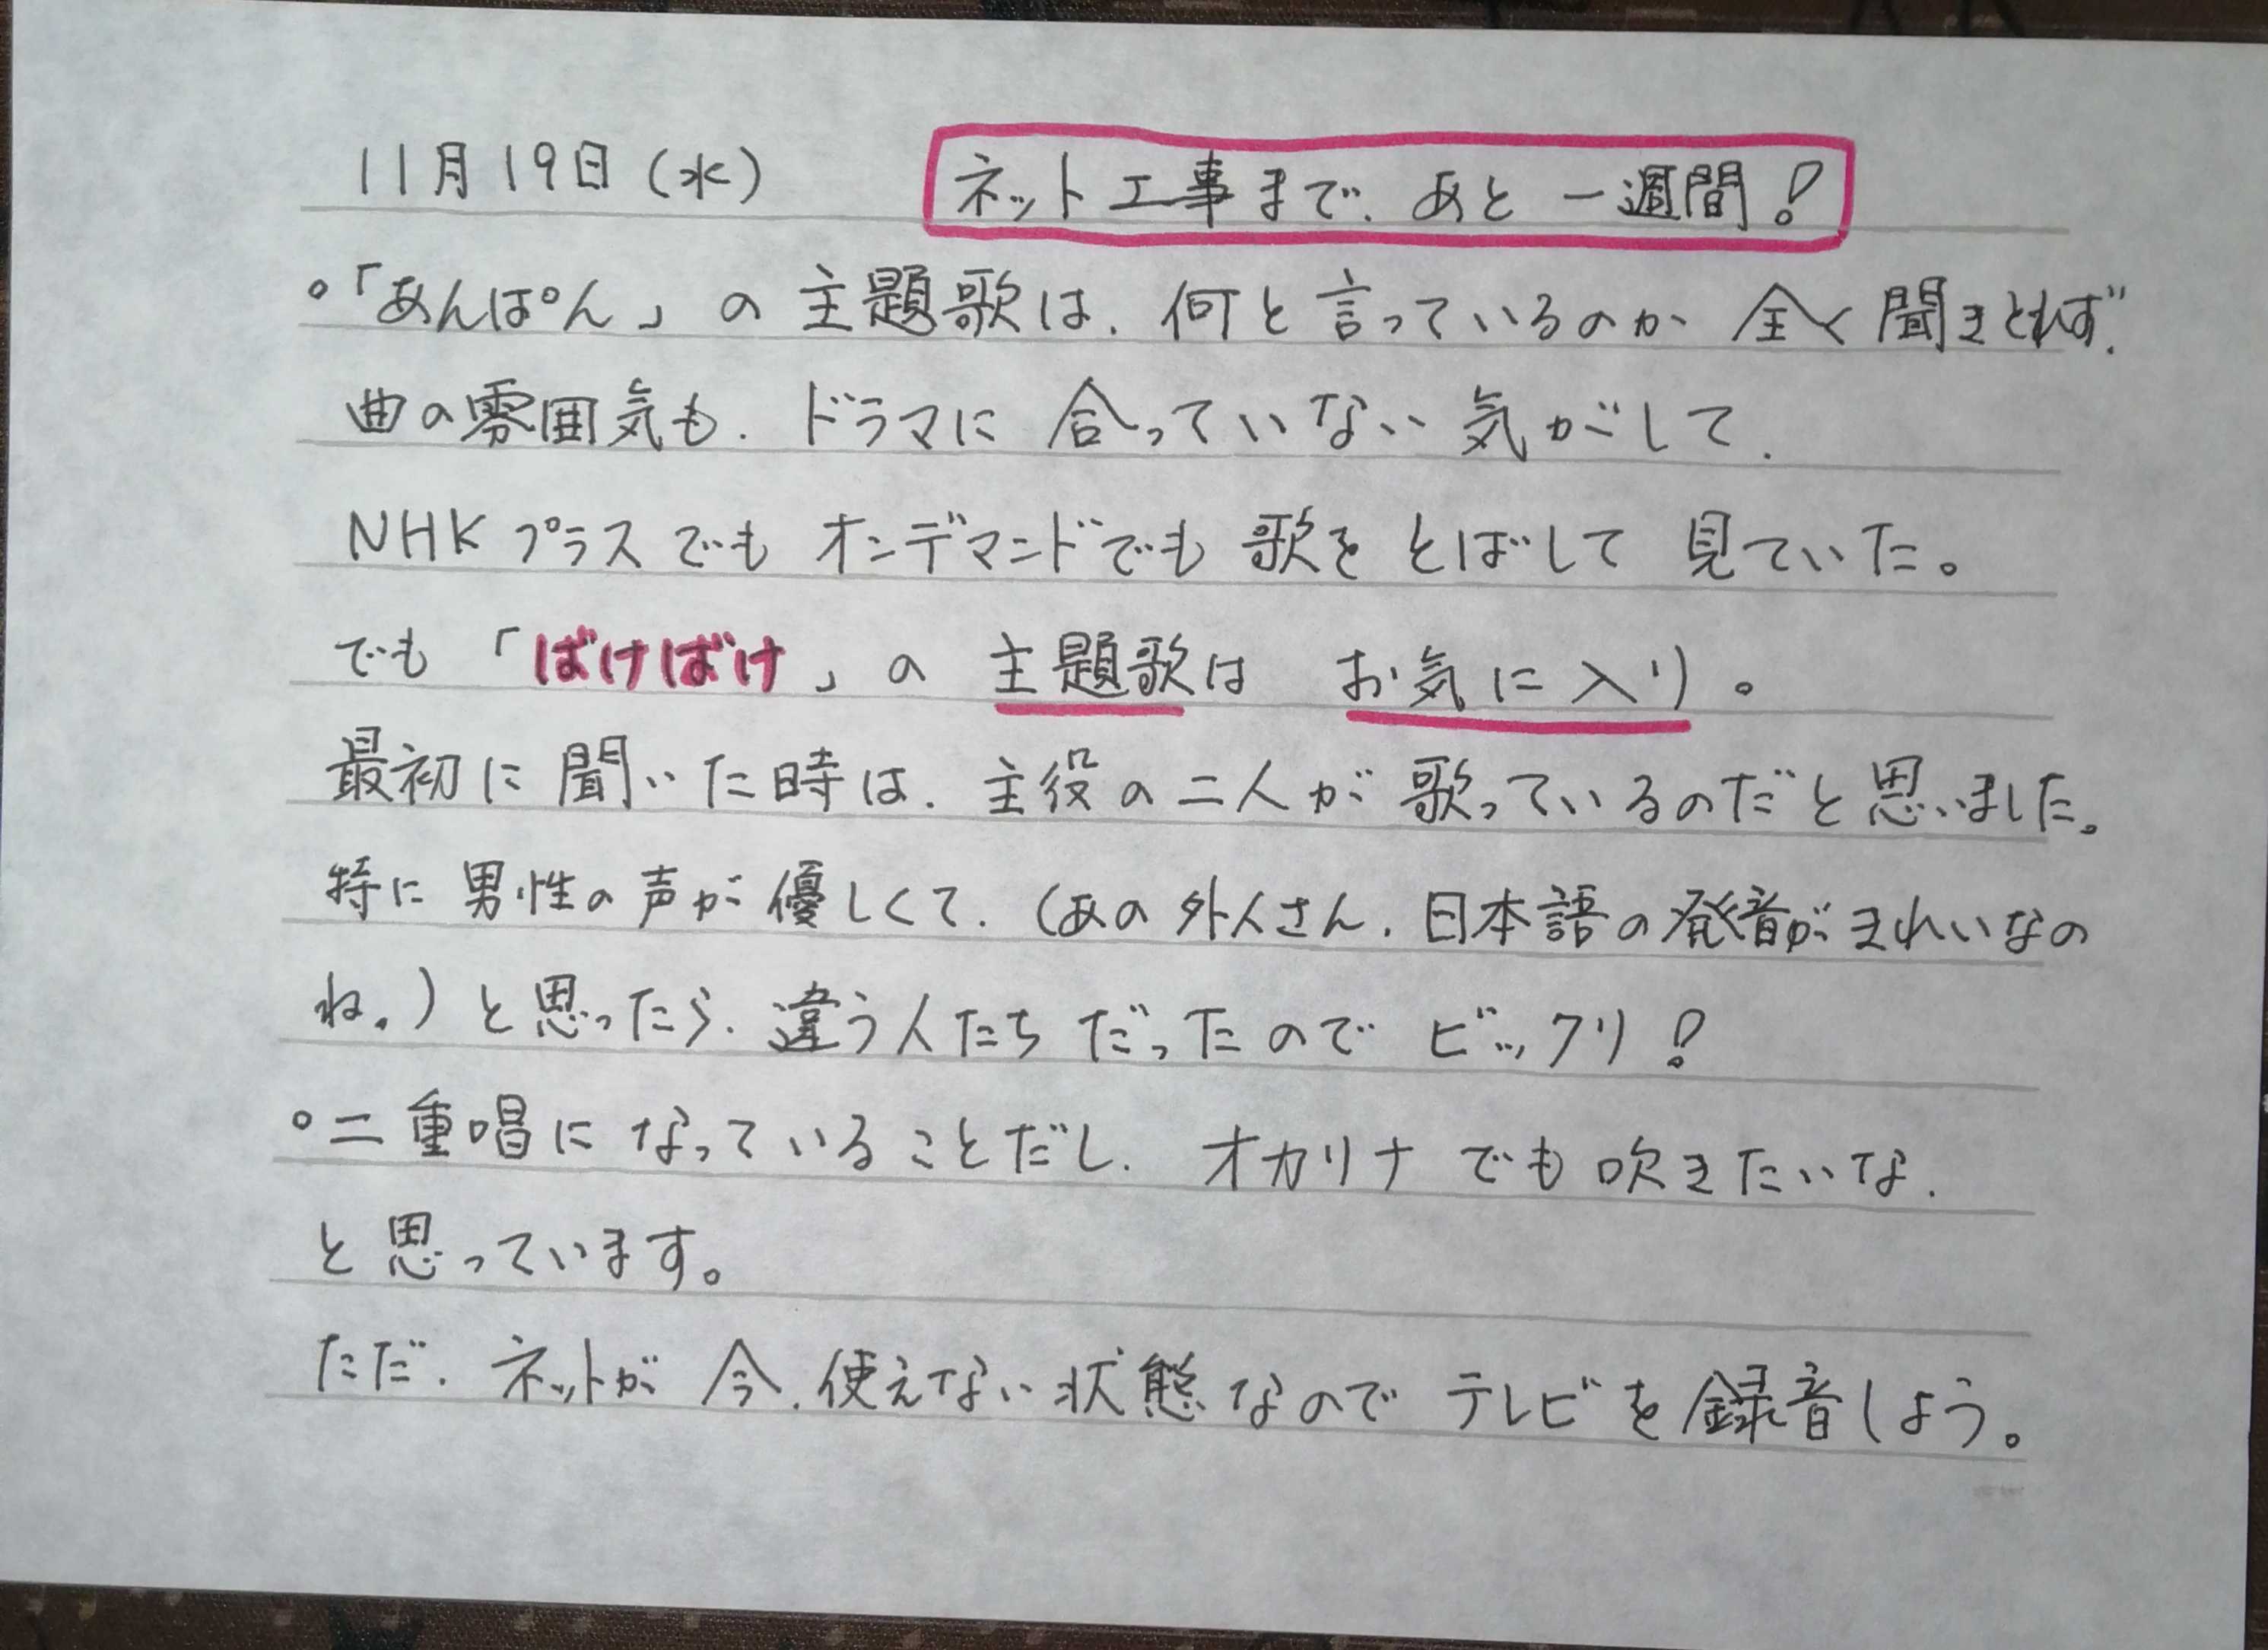 11月19日(水) ネット工事まで、あと 一週間!
○「あんぱん」の主題歌は、何と言っているのか 全く聞きとれず、
曲の雰囲気も、ドラマに 合っていない気がして、
NHKプラスでも オンデマンドでも 歌を とばして 見ていた。
でも「ばけばけ」の 主題歌は お気に入り。
最初に聞いた時は、主役の二人が 歌っているのだと思いました。
特に 男性の声が優しくて、(あの外人さん、日本語の発音がきれいなの
ね。)と思ったら、違う人たち だったので ビックリ!
○二重唱に なっていることだし、オカリナ でも 吹きたいな、
と思っています。
ただ、ネットが 今、使えない状態なので テレビを録音しよう。